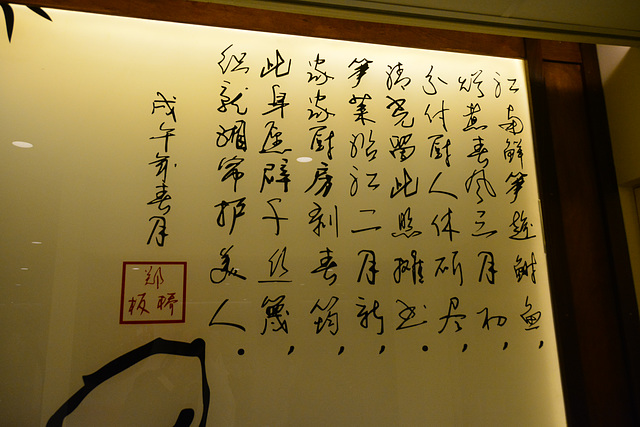 江南鲜笋趁鲥鱼，
烂煮春风三月初，
分付厨人休斫尽，
清光留此照摊书。
笋菜沿江二月新，
家家厨房剥春筠，
此身愿劈千丝篾，
织就湘帘护美人。
戊午年春月
郑板桥